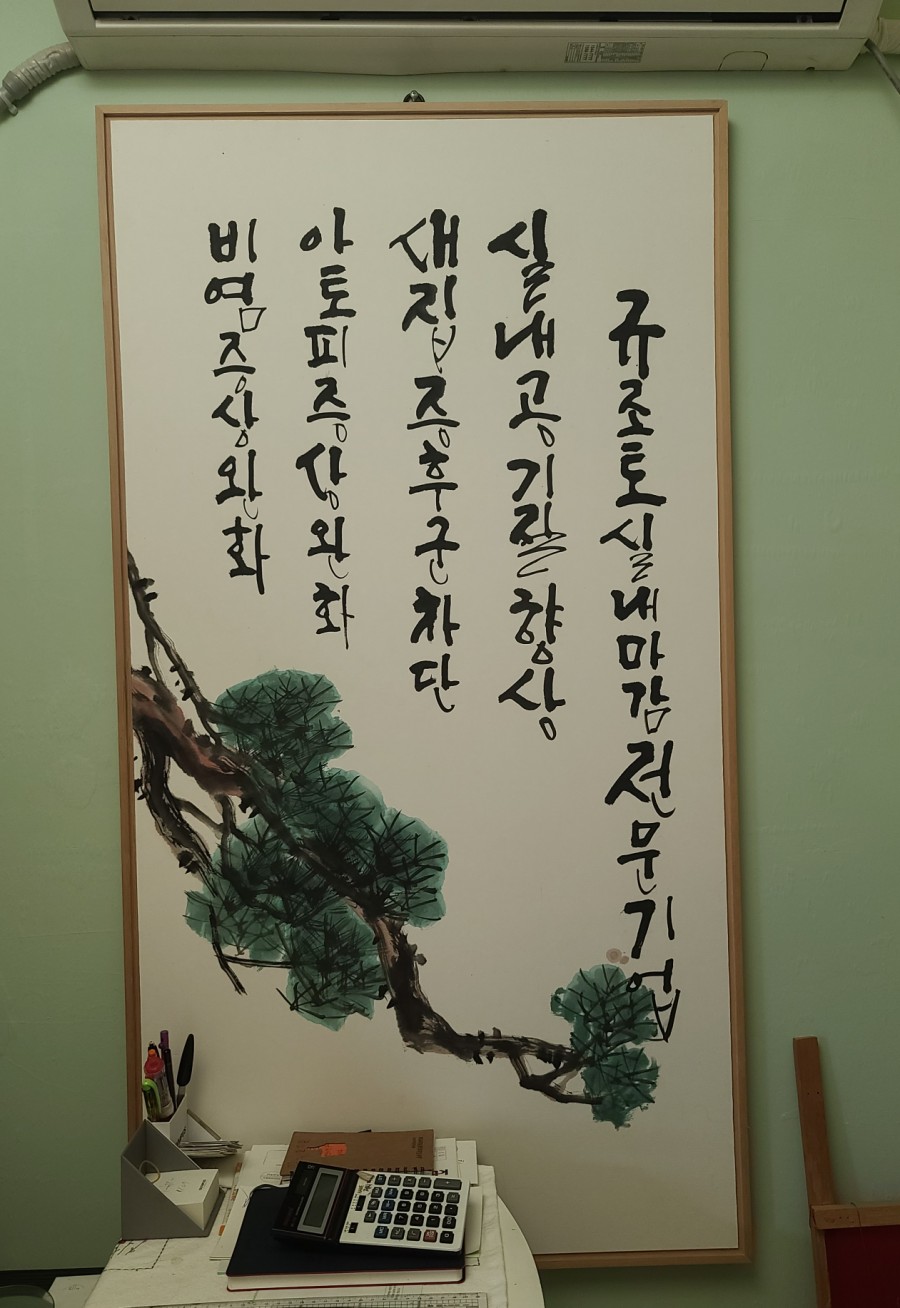 규조토실내마감전문기업
실내공기질향상
새집증후군차단
아토피증상완화
비염증상완화